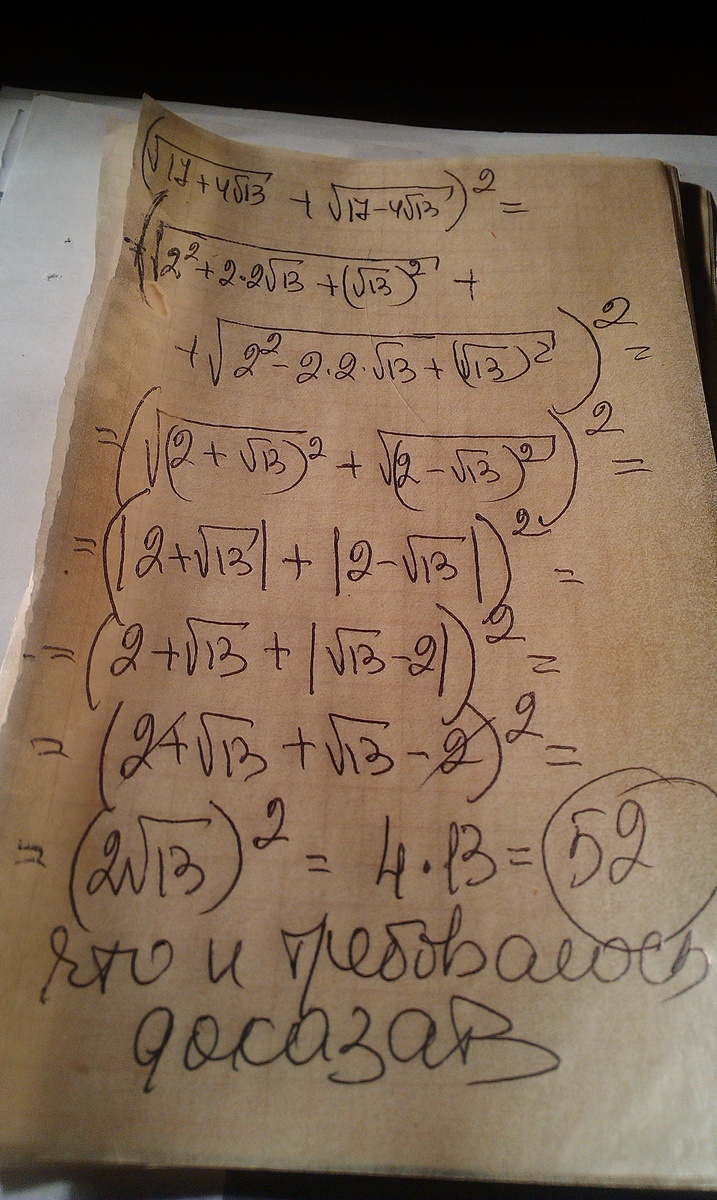 (√(17+4√13) + √(17-4√13))² =
(√(2²+2·2√13+(√13)²) +
+√(2²-2·2·√13+(√13)²))² =
=(√((2+√13)²) + √((2-√13)²))² =
=(|2+√13| + |2-√13|)² =
=(2+√13+|√13-2|)² =
=(2+√13+√13-2)² =
=(2√13)² = 4·13 = 52
что и требовалось
доказать